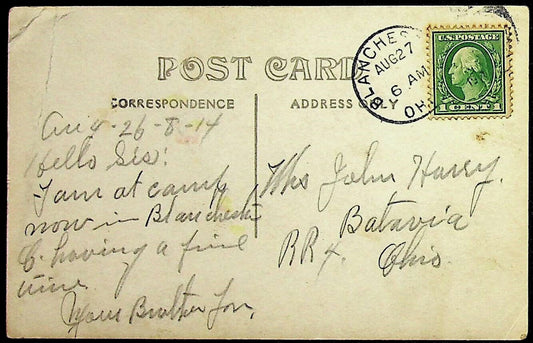 POST CARD
CORRESPONDENCE
ADDRESS ONLY
BLANCHES
AUG 27
6 AM
OH
U.S. POSTAGE
1 CENT 1
26-8-14
Hello Sis:
I am at camp
now in Blanchester
O. having a fine
time.
Your Brother
Mrs John
Batavia
RR 4. Ohio.